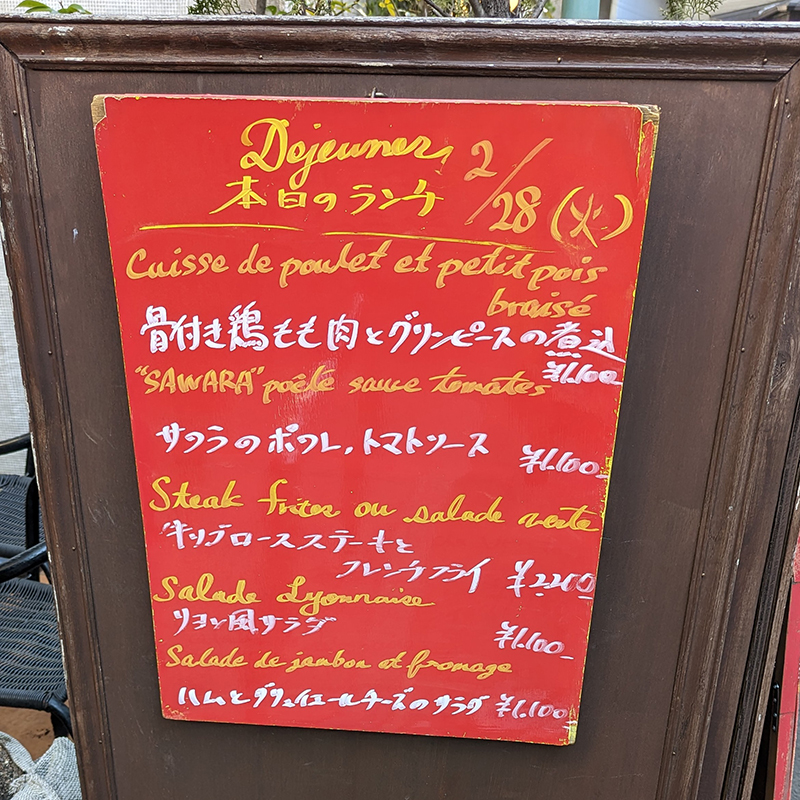 Dejeuner 2/28(火)
本日のランチ
Cuisse de poulet et petit pois
braisé
骨付き鶏もも肉とグリンピースの煮込
¥1,100
"SAWARA" poêlé sauce tomates
サワラのポワレ,トマトソース
¥1,100-
Steak frites ou salade verte
牛リブロースステーキと
フレンチフライ ¥2,200
Salade Lyonnaise
リヨン風サラダ
¥1,100-
Salade de jambon et fromage
ハムとグリュイエールチーズのサラダ ¥1,100